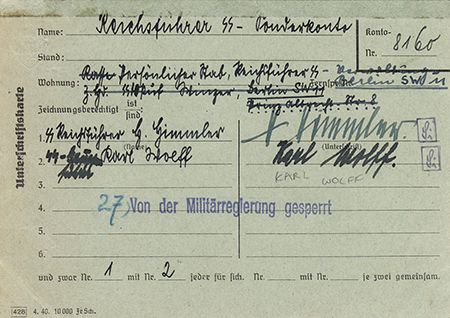 Name: Reichsführer SS - Sonderkonto
Konto-
Nr. 8160
Stand:
Wohnung: Persönlicher Stab, Reichsführer SS - Verwaltung
z.Hd. Winzer, Berlin SW 11
Prinz Albrecht-Str. 8
Zeichnungsberechtigt ist
sind:
Unterschriftskarte
1. SS Reichsführer H. Himmler H Himmler
(Name) (Unterschrift)
2. SS- Karl Wolff Karl Wolff.
KARL WOLFF
3.
4. 27) Von der Militärregierung gesperrt
5.
6.
und zwar Nr. 1 mit Nr. 2 jeder für sich. Nr. mit Nr. je zwei gemeinsam.
428 4. 40. 10000